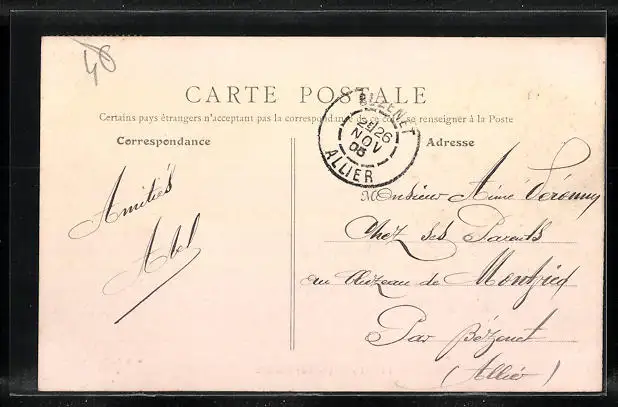 48
CARTE POSTALE
Certains pays étrangers n'acceptant pas la correspondance de ce côté, se renseigner à la Poste
Correspondance
Adresse
BÉZENET
2E 26
NOV
05
ALLIER
Amitiés
Abel
Monsieur Aimé
Chez ses Parents
au de
Par Bézenet
(Allier)